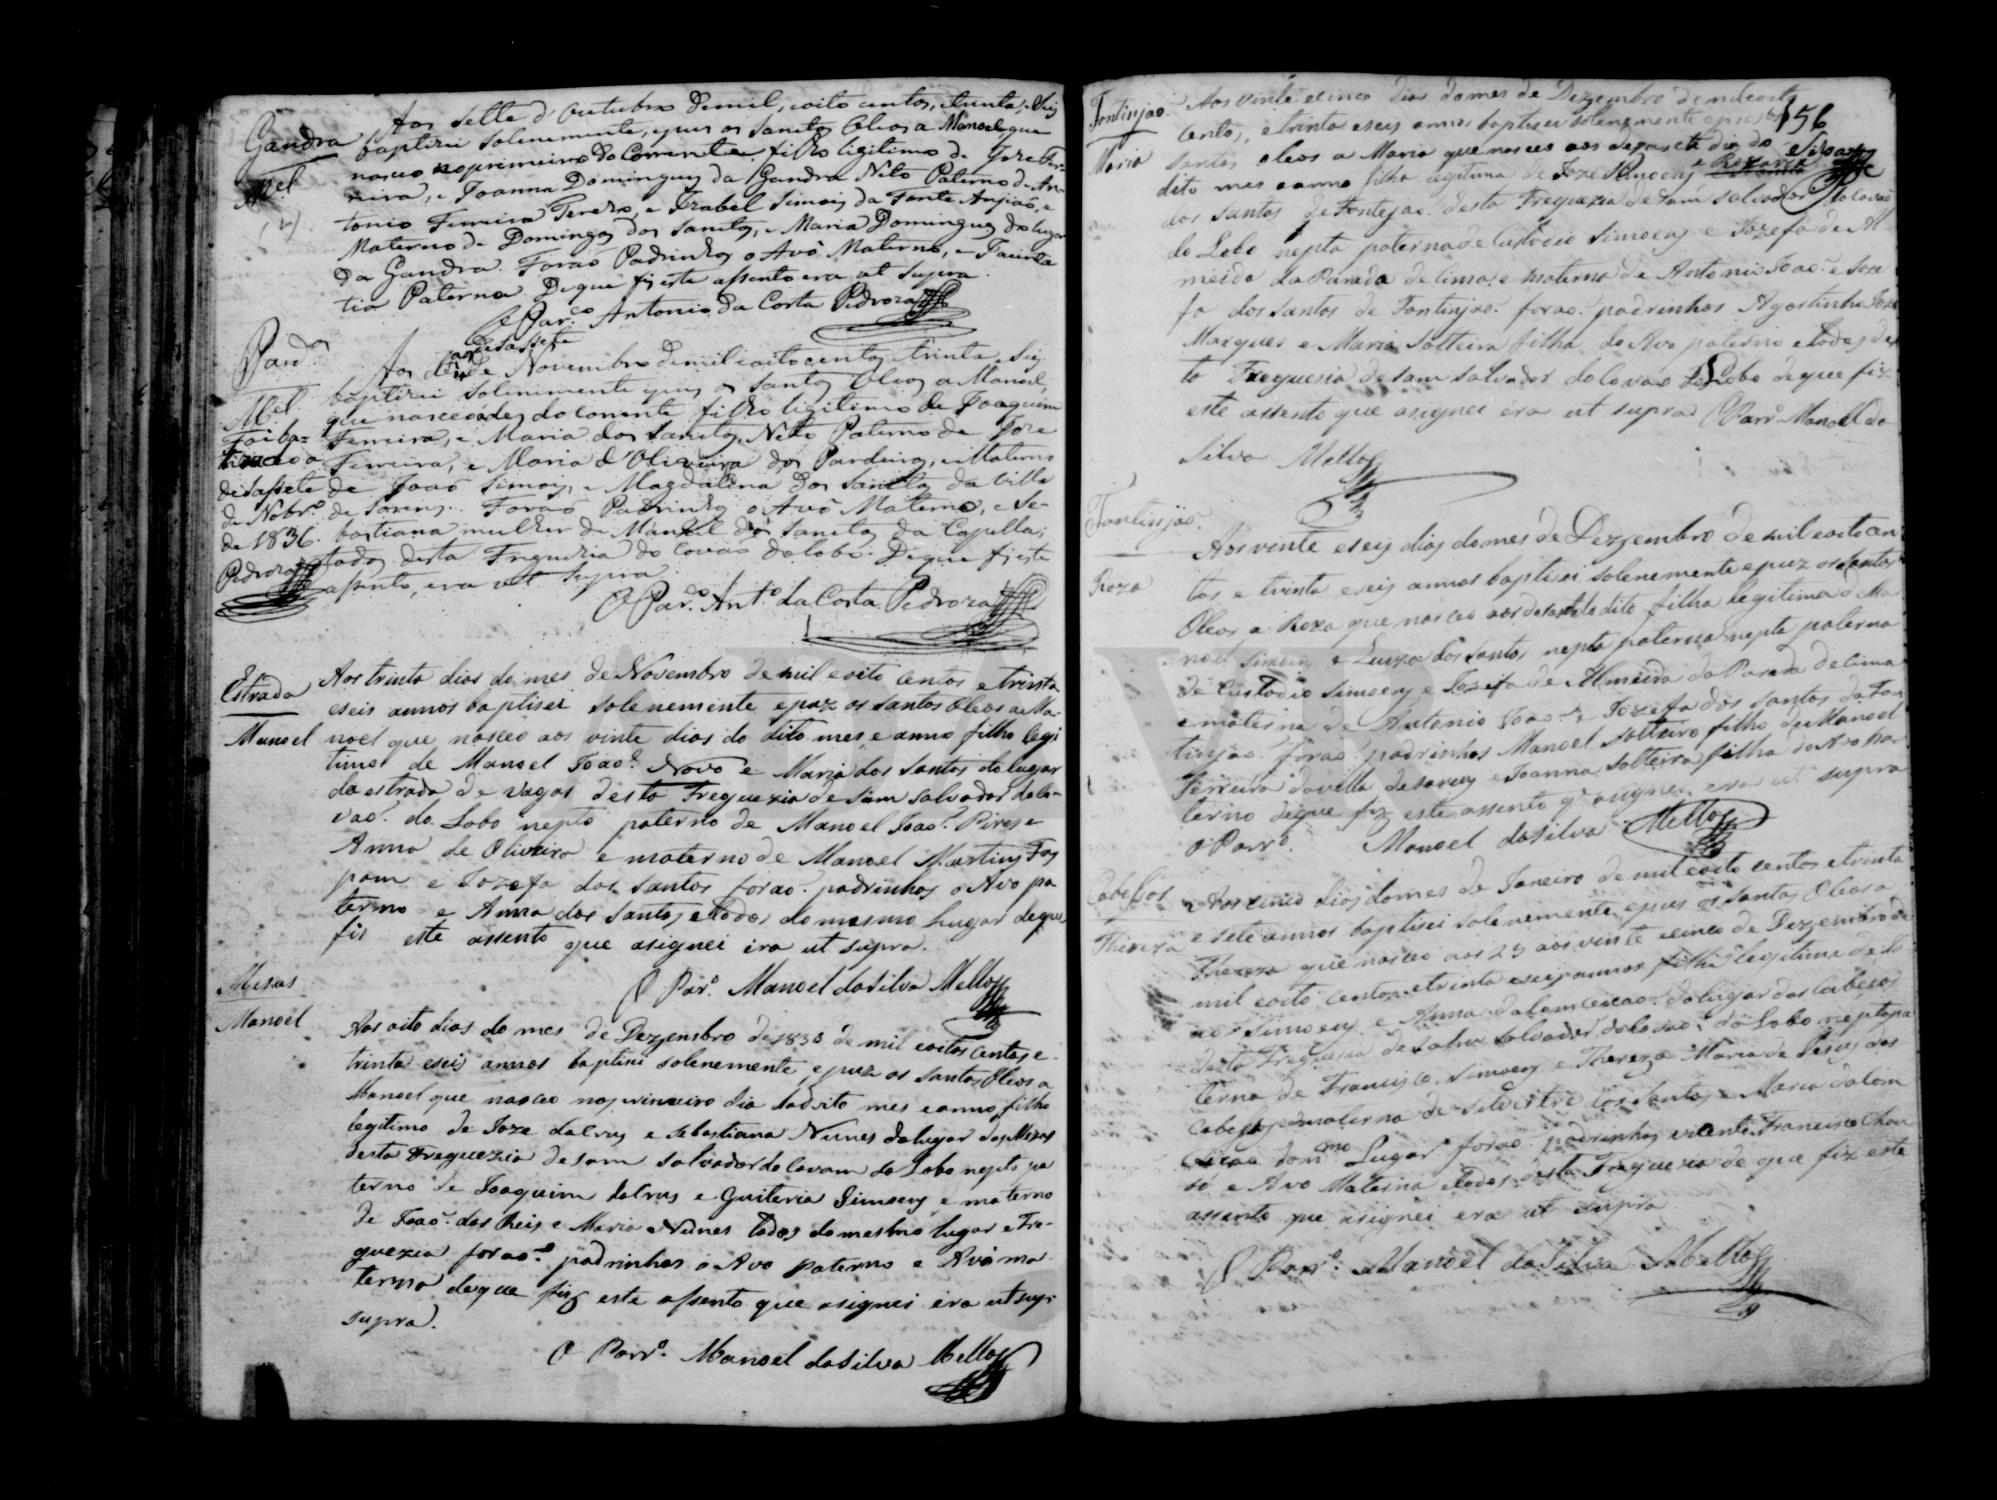 Gandra
M.el
Aos sette d'Outubro de mil, oito centos, e trinta, e Seis
baptizei solenemente, e puz os Sanctos Oleos a Manoel que
nasceo no primeiro do Corrente filho ligitimo de Joze Fer-
reira, e Joanna Domingues da Gandra Neto Paterno de An-
tonio Ferreira Terezo, e Izabel Simois da Fonte Anjiaõ, e
Materno de Domingos dos Sanctos, e Maria Domingues do lugar
da Gandra. Foraõ Padrinhos o Avô Materno, e
tia Paterna Deque fiz este assento era ut supra.
O Par.co Antonio da Costa Pedroza
Pard.as
M.el
Foi ba=
tizado a
desassete
de Nobr.o
de 1836.
Pedroza
aos desassete
Aos de Novembro de mil e oito centos trinta, Seis
baptizei solenimente e puz os Santos Oleos a Manoel,
que nasceo a des do corrente filho ligitimo de Joaquim
Ferreira, e Maria dos Sanctos, Neto Paterno de Joze
Ferreira, e Maria d'Oliveira dos Pardeiros, e Materno
de Joaõ Simois, e Magdalena dos Sanctos da Villa
de Sorens. Foraõ Padrinhos o Avô Materno, e Se-
bastiana mulher de Manoel dos Sanctos da Capella;
todos desta Freguezia do Covaõ do lobo. Deque fiz este
assento, era ut supra
O Par.o Ant.o da Costa Pedroza
Estrada
Manoel
Aos trinta dias do mes de Novembro de mil e oito centos e trinta
e seis annos baptisei solenemente e puz os santos Oleos a Ma-
noel que nasceo aos vinte dias do dito mes e anno filho legi
timo de Manoel Joaõ Novo e Maria dos santos do lugar
da estrada de vagos desta Freguezia de Sam salvador do Co-
vaõ do Lobo nepto paterno de Manoel Joaõ Pires e
Anna de Oliveira e materno de Manoel Martins
e Jozefa dos santos foraõ padrinhos o Avo pa
terno e Anna dos santos e todos do mesmo lugar deque
fis este assento que asignei era ut supra.
O Par.o Manoel da Silva Mello
Mesas
Manoel
Aos oito dias do mes de Dezembro de 1838 de mil e oitos centos e
trinta e seis annos baptisei solenemente, e puz os santos Oleos a
Manoel que nasceo no primeiro dia do dito mes e anno, filho
legitimo de Joze da Crus e Sebastiana Nunes do lugar das Mezas
desta Freguezia de sam salvador do Covam do Lobo nepto pa
terno de Joaquim da Crus e Quiteria Simoens e materno
de Joaõ dos Reis e Maria Nunes todos do mesmo lugar e Fre-
guezia foraõ padrinhos o Avo paterno e Avó ma
terna deque fiz este assento que asignei era ut sup
supra.
O Parr.o Manoel da Silva Mello
156
Fontinjaõ
Maria
Aos vinte e cinco dias do mes de Dezembro de mil e oito
centos, e trinta e seis annos baptisei solenemente e pus os
santos oleos a Maria que nasceo aos dezasete dias do
dito mes e anno filha legitima de Joze Simoens e Rozaria
dos santos de Fontejaõ desta Freguezia de sam salvador do Covaõ
do Lobo nepta paterna de Custodio Simoens e Jozefa de Al
meida da Parada de sima, e materna de Antonio Joaõ e Joze
fa dos santos de Fontinjaõ foraõ padrinhos Agostinho Joze
Marques e Maria solteira filha do Avo paterno e todos des
ta Freguesia de sam salvador do Covaõ do Lobo de que fiz
este assento que asignei era ut supra O Parr.o Manoel da
Silva Mello
Fontinjaõ
Roza
Aos vinte e seis dias do mes de Dezembro de mil e oito cen
tos e trinta e seis annos baptisei solenemente e puz os santos
Oleos a Roza que nasceo aos desasete do dito filha legitima de Ma
noel Simoens e Luiza dos santos nepta paterna nepta paterna
de Custodio Simoens e Jozefa de Almeida da Parada de cima
e materna de Antonio Joaõ e Jozefa dos santos da Fon
tinjaõ foraõ padrinhos Manoel solteiro filho de Manoel
Ferreira da villa de sorens e Joanna solteira filha do Avo pa
terno deque fiz este assento q asignei era ut supra
O Parr.o Manoel da Silva Mello
Cabeços
Thereza
Aos cinco dias do mes de Janeiro de mil e oito centos e trinta
e sete annos baptisei solenemente, e puz os santos Oleos a
Thereza que nasceo aos 25 aos vinte e cinco de Dezembro de
mil e oito centos e trinta e seis annos filha legitima de
Simoens e Anna da Comceicaõ do lugar dos Cabeços
desta Freguesia de salvador do Covaõ do Lobo nepta pa
terna de Francisco Simoens e Thereza Maria de Jesus dos
Cabeços e materna de Silvestre dos Santos e Maria da Com
ceicaõ do m.mo Lugar foraõ padrinhos Vicente Francisco
e Avo Materna e todos desta Freguezia de que fiz este
assento que asignei era ut supra
O Parr.o Manoel da Silva Mello